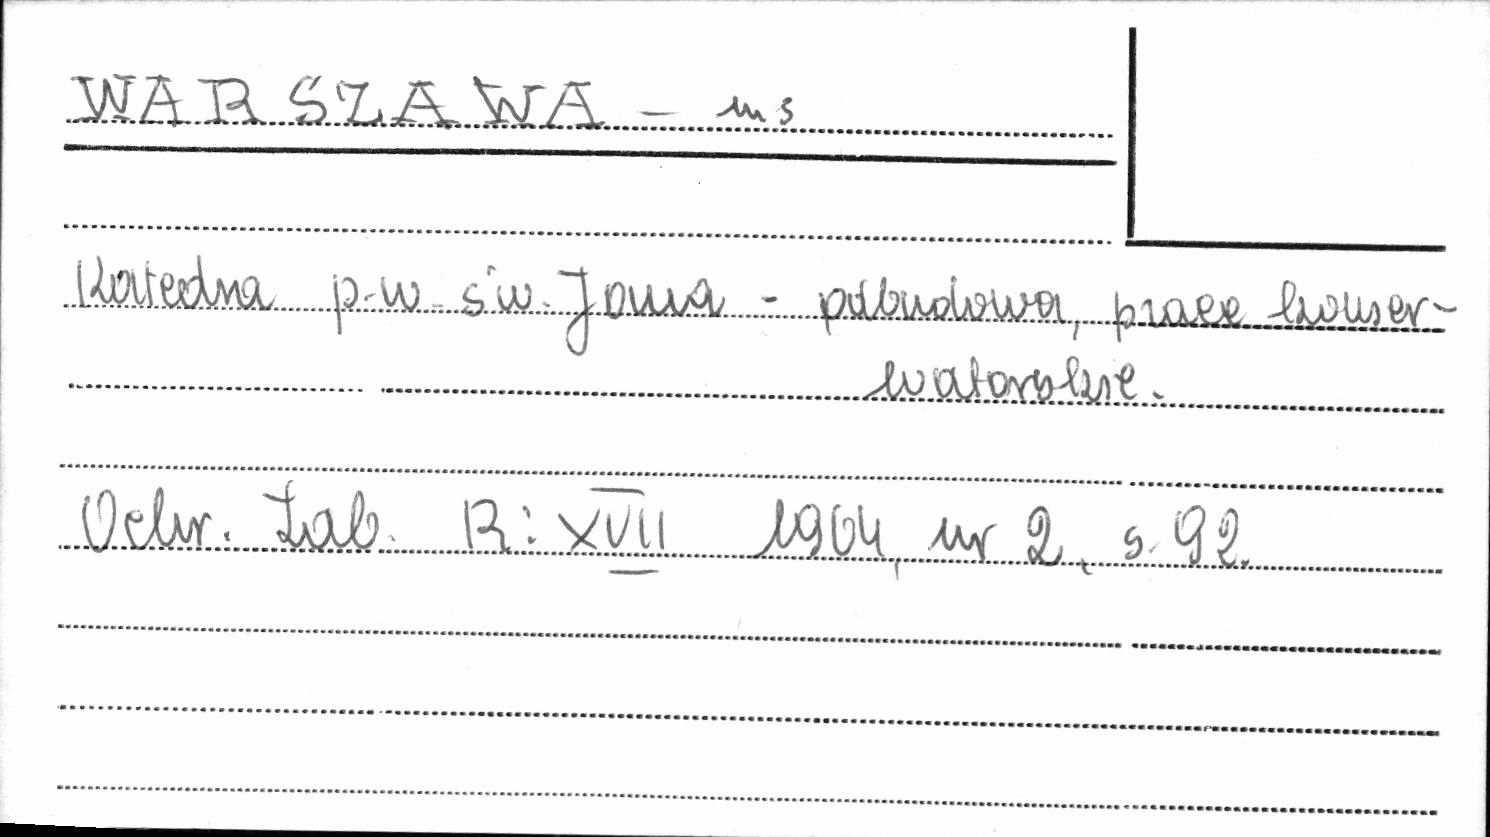 WARSZAWA - m s
Katedra p.w. św. Jana - odbudowa, prace konser-
watorskie.
Ochr. Zab. R: XVII 1964, nr 2, s. 92.